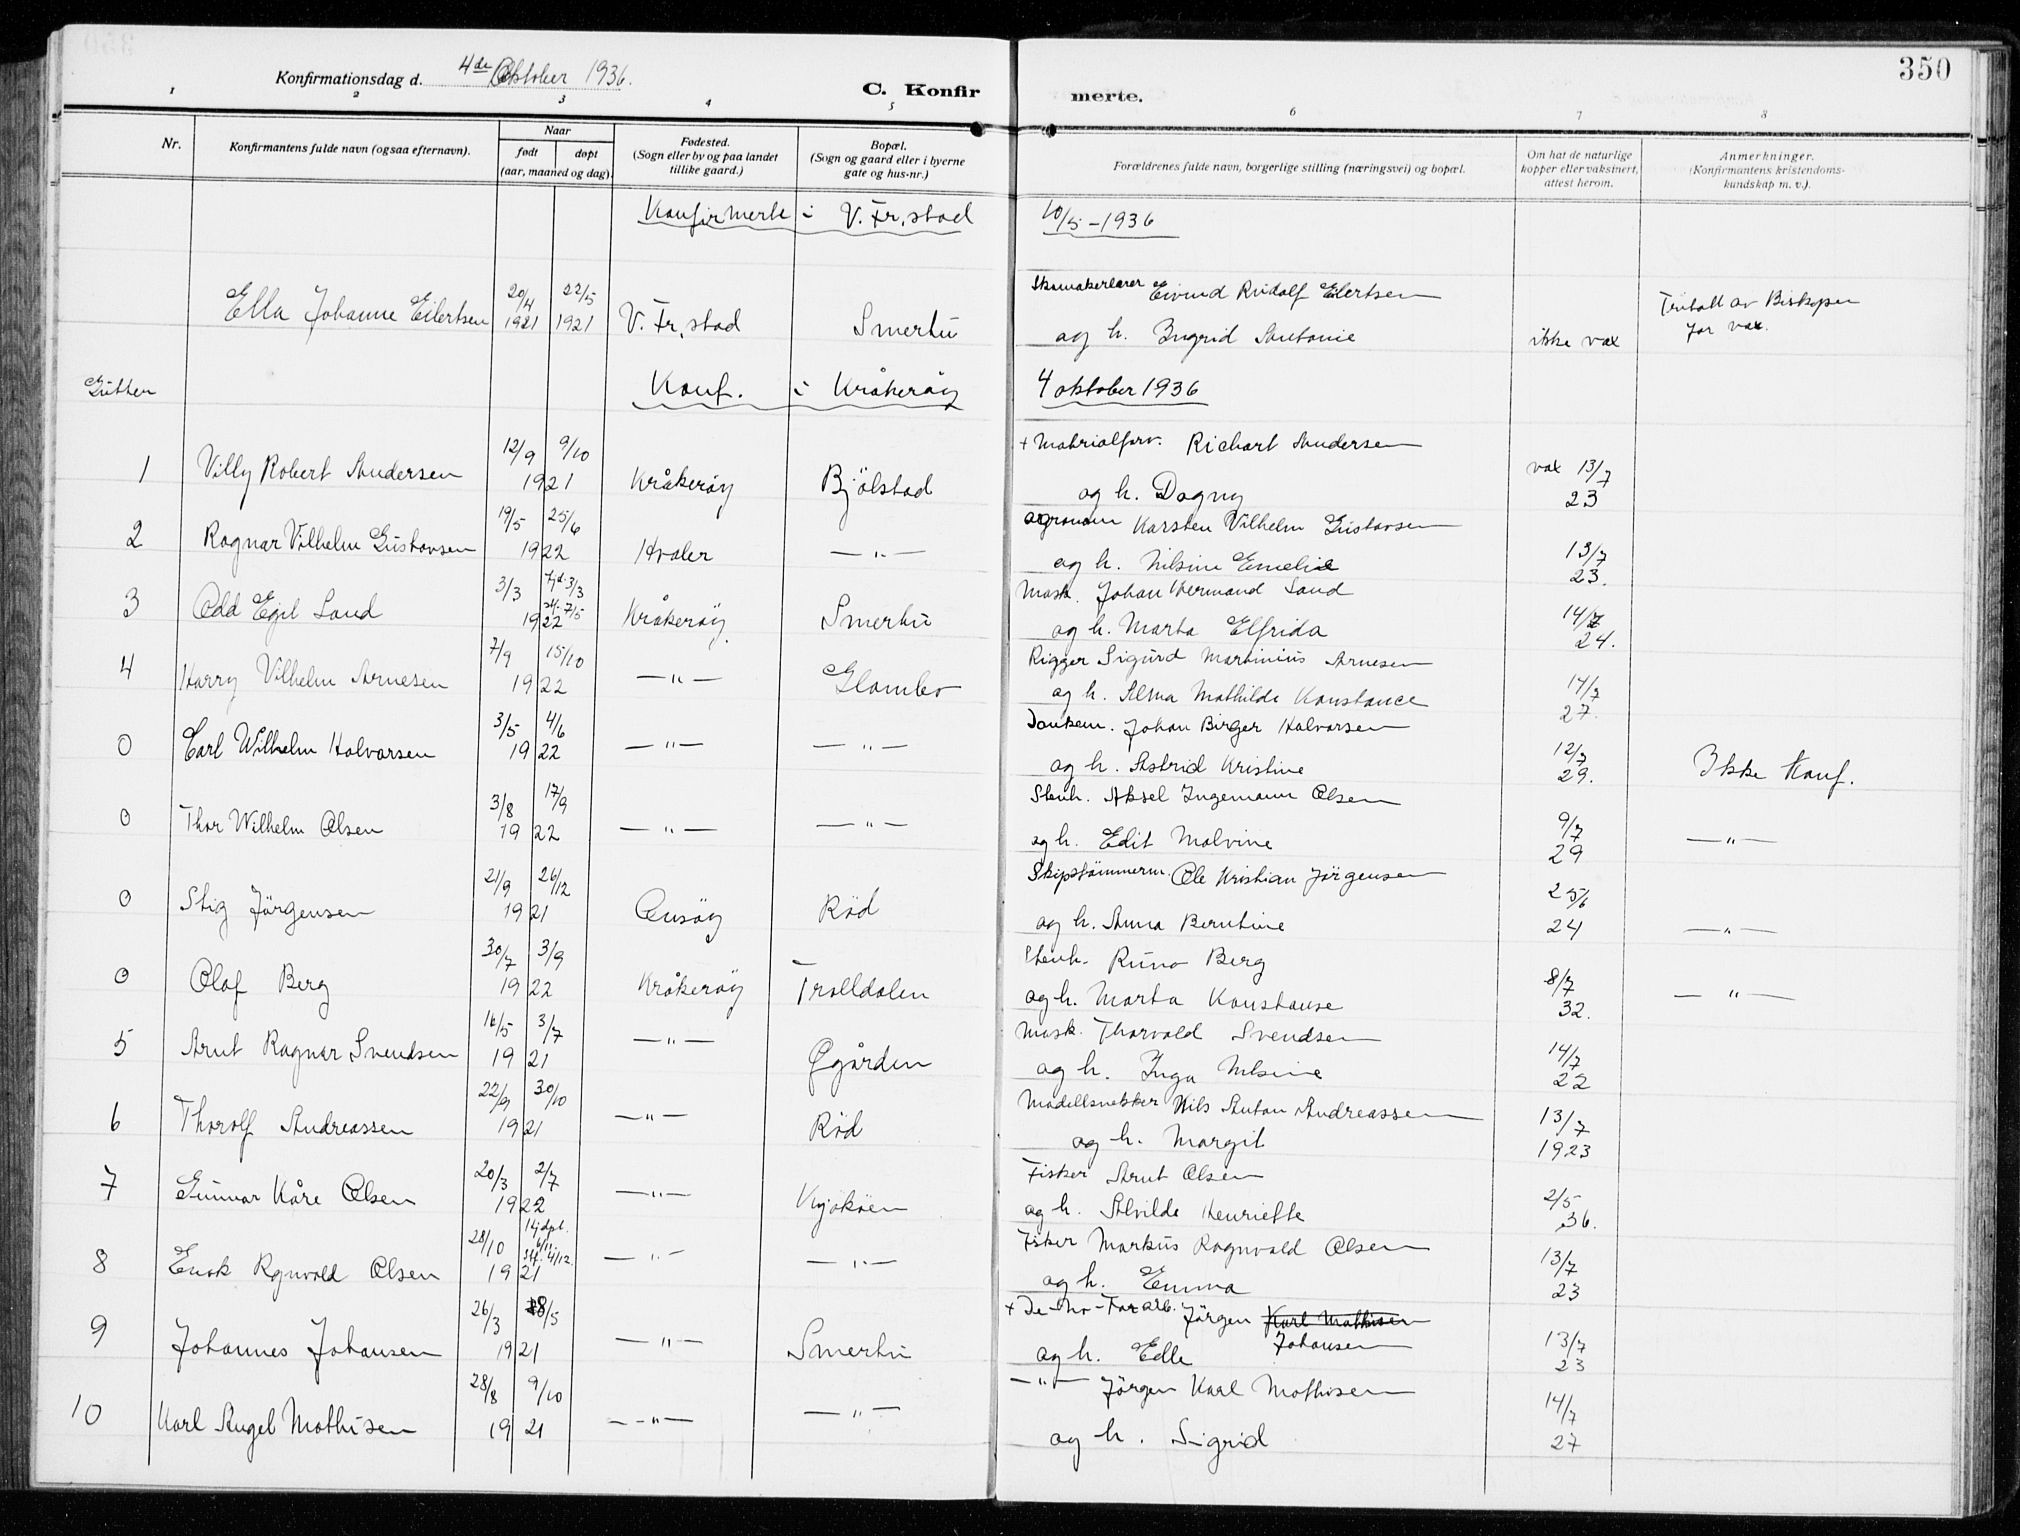 350
Konfirmationsdag d. 4de Oktober 1936.
C. Konfir merte.
1 2 3 4 5 6 7 8
Nr.
Konfirmantens fulde navn (ogsaa efternavn).
Naar
født døpt
(aar, maaned og dag).
Fødested.
(Sogn eller by og paa landet
tillike gaard.)
Bopæl.
(Sogn og gaard eller i byerne
gate og hus-nr.)
Forældrenes fulde navn, borgerlige stilling (næringsvei) og bopæl.
Om hat de naturlige
kopper eller vaksinert,
attest herom.
Anmerkninger.
(Konfirmantens kristendoms-
kundskap m. v.).
Konfirmerte i V. Fr.stad 10/5 - 1936
20/4 22/5 Skomakerlærer Eivind Rudolf Eilertsen
Ella Johanne Eilertsen 1921 1921 V. Fr.stad Smertu og h. Ingrid Antonie ikke vax Fritatt av Biskopen
for vax.
Gutter Konf. i Kråkerøy 4 oktober 1936
12/9 9/10 + Matrialforv. Richart Andersen
1 Villy Robert Andersen 1921 Kråkerøy Bjölstad og h. Dagny vax 13/7
23
19/5 25/6 agronom Karsten Vilhelm Gustavsen
2 Ragnar Vilhelm Gustavsen 1922 Hvaler —"— og h. Nilsine Emelie 13/7
23.
3/3 hjd. 3/3 Mask. Johan Hermand Sand
3 Odd Egil Sand st. 7/5 1922 Kråkerøy Smertu og h. Marta Elfrida 14/7
24.
7/9 15/10 Rigger Sigurd Martinius Arnesen
4 Harry Vilhelm Arnesen 1922 —"— Glombo og h. Alma Mathilde Konstance 14/7
27.
3/5 4/6 Johan Birger Halvorsen
0 Carl Wilhelm Halvorsen 1922 —"— —"— og h. Astrid Kristine 12/7
29. Ikke Konf.
3/8 17/9 Stenh. Aksel Ingemann Olsen
0 Thor Wilhelm Olsen 1922 —"— —"— og h. Edit Malvine 9/7
29 —"—
21/9 26/12 Skipstömmerm. Ole Kristian Jörgensen
0 Stig Jörgensen 1921 Onsöy Röd og h. Anna Berntine 25/6
24 —"—
30/7 3/9 Stenh. Runo Berg
0 Olaf Berg 1922 Kråkeröy Trolldalen og h. Marta Konstanse 8/7
32. —"—
16/5 3/7 Mask. Thorvald Svendsen
5 Arnt Ragnar Svendsen 1921 —"— Øgården og h. Inga Nilsine 14/7
22
22/9 30/10 Modellsnekker Nils Anton Andreassen
6 Thorolf Andreassen 1921 —"— Röd og h. Margit 13/7
1923
20/3 2/7 Fisker Arnt Olsen
7 Gunnar Kåre Olsen 1922 —"— Kjøköen og h. Alvilde Henriette 2/5
36.
28/10 hjdpt. 6/11 Fisker Markus Ragnvald Olsen
8 Enok Rgnvald Olsen st. 4/12. 1921 —"— —"— og h. Emma 13/7
23
26/3 28/5 + De-No-Fa arb. Jörgen Karl Mathisen
9 Johannes Johansen 1921 —"— Smertu og h. Edle Johansen 13/7
23
28/8 9/10 —"— Jörgen Karl Mathisen
10 Karl Angel Mathisen 1921 —"— —"— og h. Sigrid 14/7
27